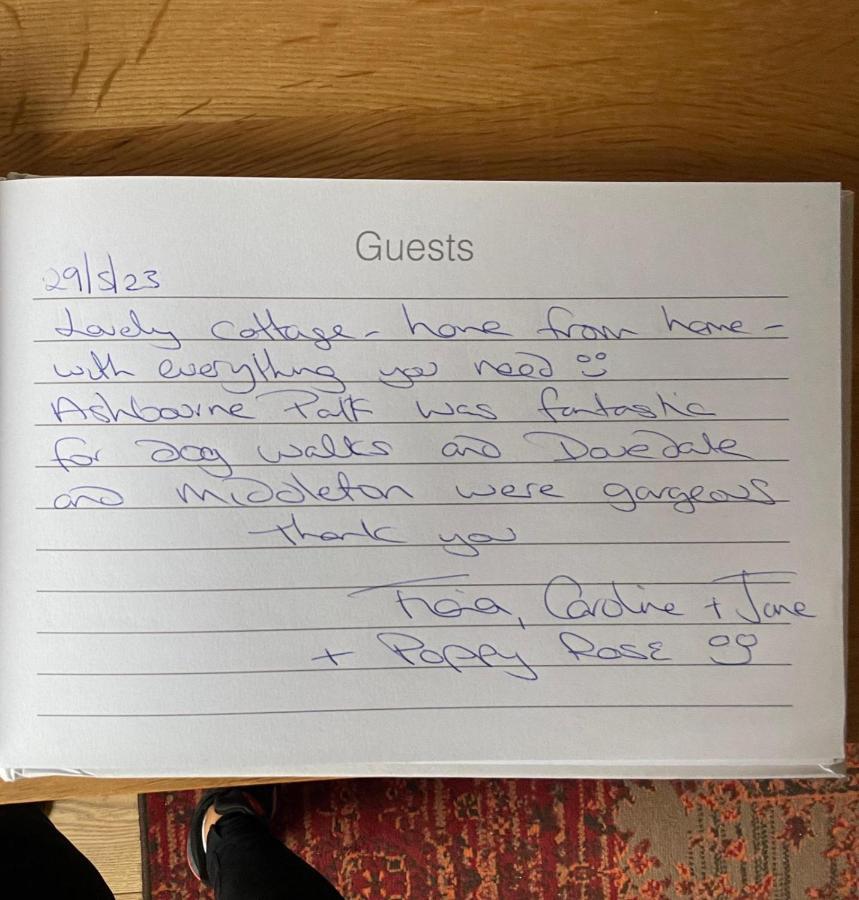 Guests
29/5/23
Lovely cottage - home from home -
with everything you need
Ashbourne Park was fantastic
for dog walks and Dovedale
and Middleton were gorgeous
thank you
Caroline + Jane
+ Poppy Rose